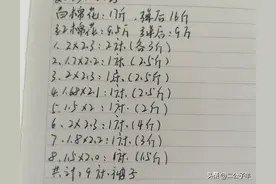 白棉花:17斤 弹后16斤
弹后9斤
1. 2×2.3:2床.(各3斤)
2. 1.7×2.2:1床(2.5斤)
3. 2×2.3:1床.(2.5斤)
4. 1.68×2.1:1床.(2.5斤)
5. 1.5×2:1床.(2斤)
6. 2×2.3:1床.(4斤)
7. 1.8×2.2:1床.(3斤)
8. 1.5×2.0:1床.(1.5斤)
共计:9床被子
头条@二公子年